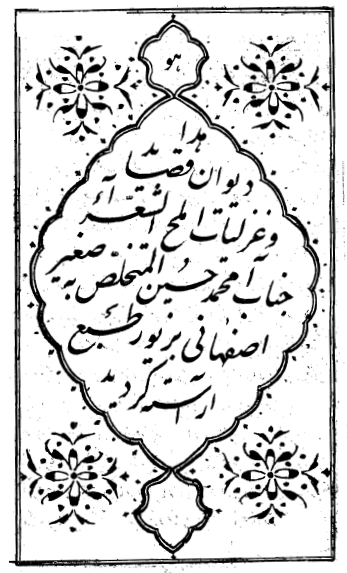 هو
هذا
دیوان قصاید
و غزلیات املح الشعرآء
جناب آ محمد حسین المتخلص به صغیر
اصفهانی بزیور طبع
آراسته گردید